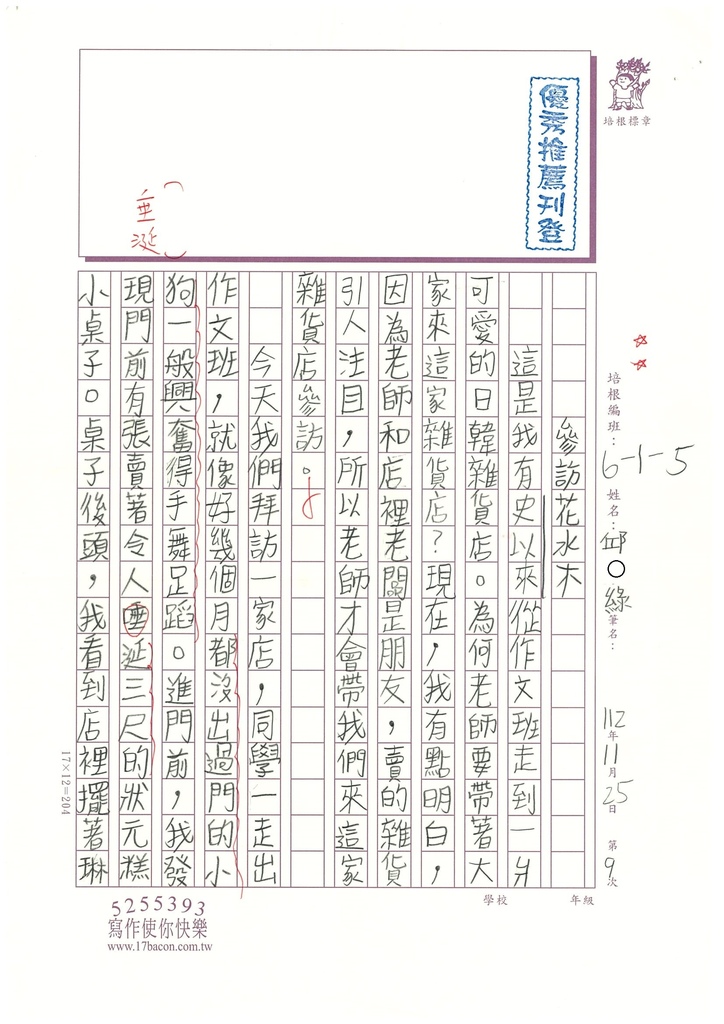 優秀推薦刊登
培根標章
培根編班：6-1-5
姓名：邱○綠
筆名：
112年11月25日 第9次
(垂涎)
參訪花水木
這是我有史以來從作文班走到一分
可愛的日韓雜貨店。為何老師要帶著大
家來這家雜貨店？現在，我有點明白，
因為老師和店裡老闆是朋友，賣的雜貨
引人注目，所以老師才會帶我們來這家
雜貨店參訪。
今天我們拜訪一家店，同學一走出
作文班，就像好幾個月都沒出過門的小
狗一般興奮得手舞足蹈。進門前，我發
現門前有張賣著令人唾延三尺的狀元糕
小桌子。桌子後頭，我看到店裡擺著琳
17×12=204
學校
年級
5255393
寫作使你快樂
www.17bacon.com.tw